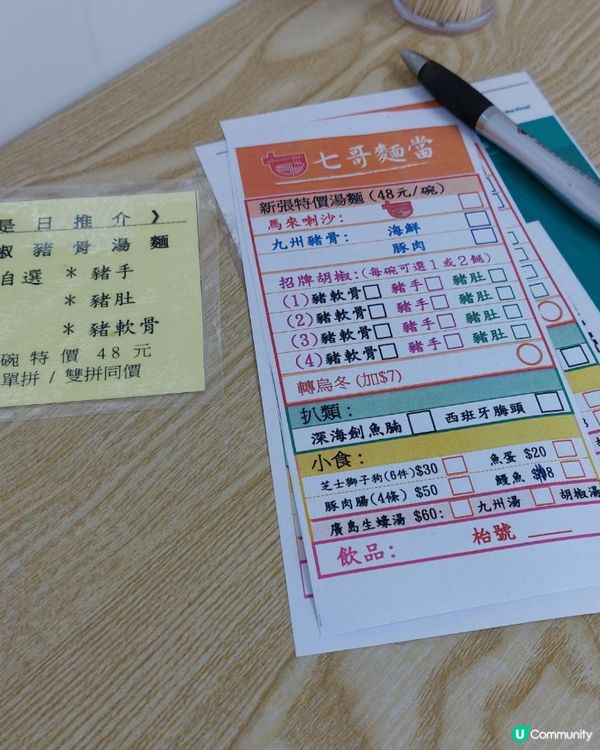 是日推介》
椒豬骨湯麵
自選 * 豬手
* 豬肚
* 豬軟骨
碗特價 48 元
單拼 / 雙拼同價
七哥麵當
新張特價湯麵 (48元/碗)
馬來喇沙:
九州豬骨: 海鮮
豚肉
招牌胡椒:(每碗可選1或2餸)
(1)豬軟骨 豬手 豬肚
(2)豬軟骨 豬手 豬肚
(3)豬軟骨 豬手 豬肚
(4)豬軟骨 豬手 豬肚
轉烏冬 (加$7)
扒類:
深海劍魚腩 西班牙脢頭
小食:
芝士獅子狗(6件)$30 魚蛋 $20
豚肉腸(4條) $50 鰻魚 $8
廣島生蠔湯 $60: 九州湯 胡椒湯
飲品: 枱號
U Community